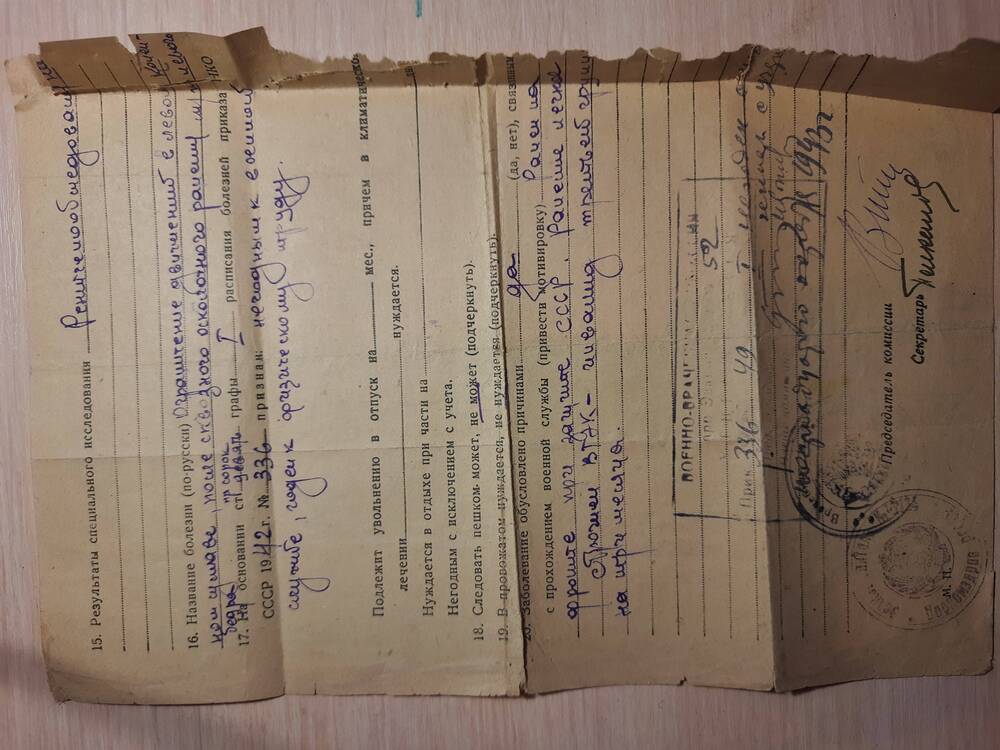 15. Результаты специального исследования
16. Название болезни (по-русски) Ограничение движений в левом колен-
ном суставе, после сквозного осколочного ранения левого
бедра
17. На основании ст. сорок девять графы I расписания болезней приказа НКО
СССР 1942 г. № 336 признан: негодным к военной
службе, годен к физическому труду.
Подлежит увольнению в отпуск на мес., причем в климатическо
лечении нуждается.
Нуждается в отдыхе при части на
Негодным с исключением с учета.
18. Следовать пешком может, не может (подчеркнуть).
19. В провожатом нуждается, не нуждается (подчеркнуть).
20. Заболевание обусловлено причинами да (да, нет), связанным
с прохождением военной службы (привести мотивировку) Ранен на
фронте при защите СССР. Ранение легкое
ВТЭК - инвалид третьей групп
на три месяца.
ВОЕННО-ВРАЧЕБНАЯ
52
Прик 336 49 I негоден
с учета
1943г
Председатель комиссии
Секретарь
М. П.